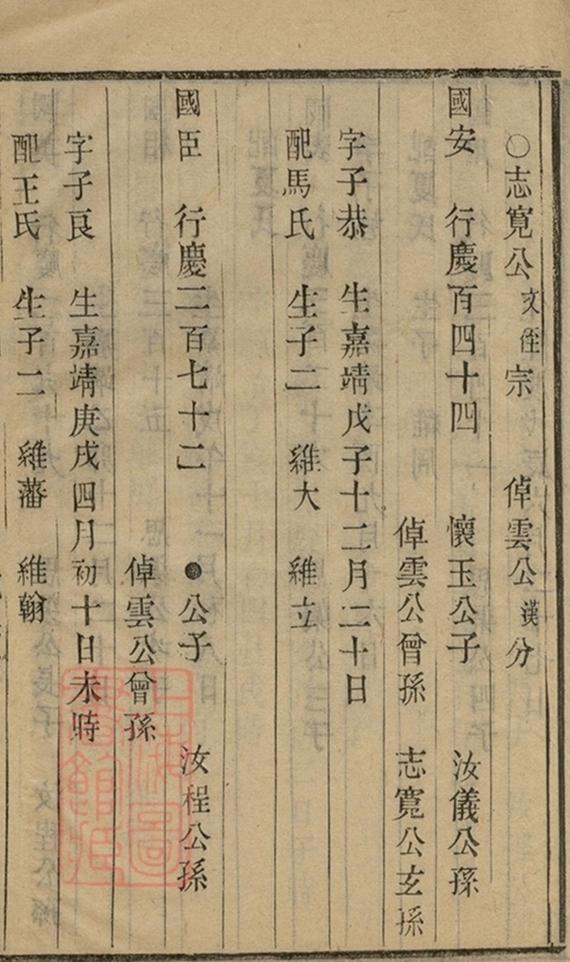 ○志寬公文侄宗 倬雲公漢分
國安 行慶百四十四 懷玉公子 汝儀公孫
倬雲公曾孫 志寬公玄孫
字子恭 生嘉靖戊子十二月二十日
配馬氏 生子二 維大 維立
國臣 行慶二百七十二 ●公子 汝程公孫
倬雲公曾孫
字子良 生嘉靖庚戌四月初十日未時
配王氏 生子二 維藩 維翰